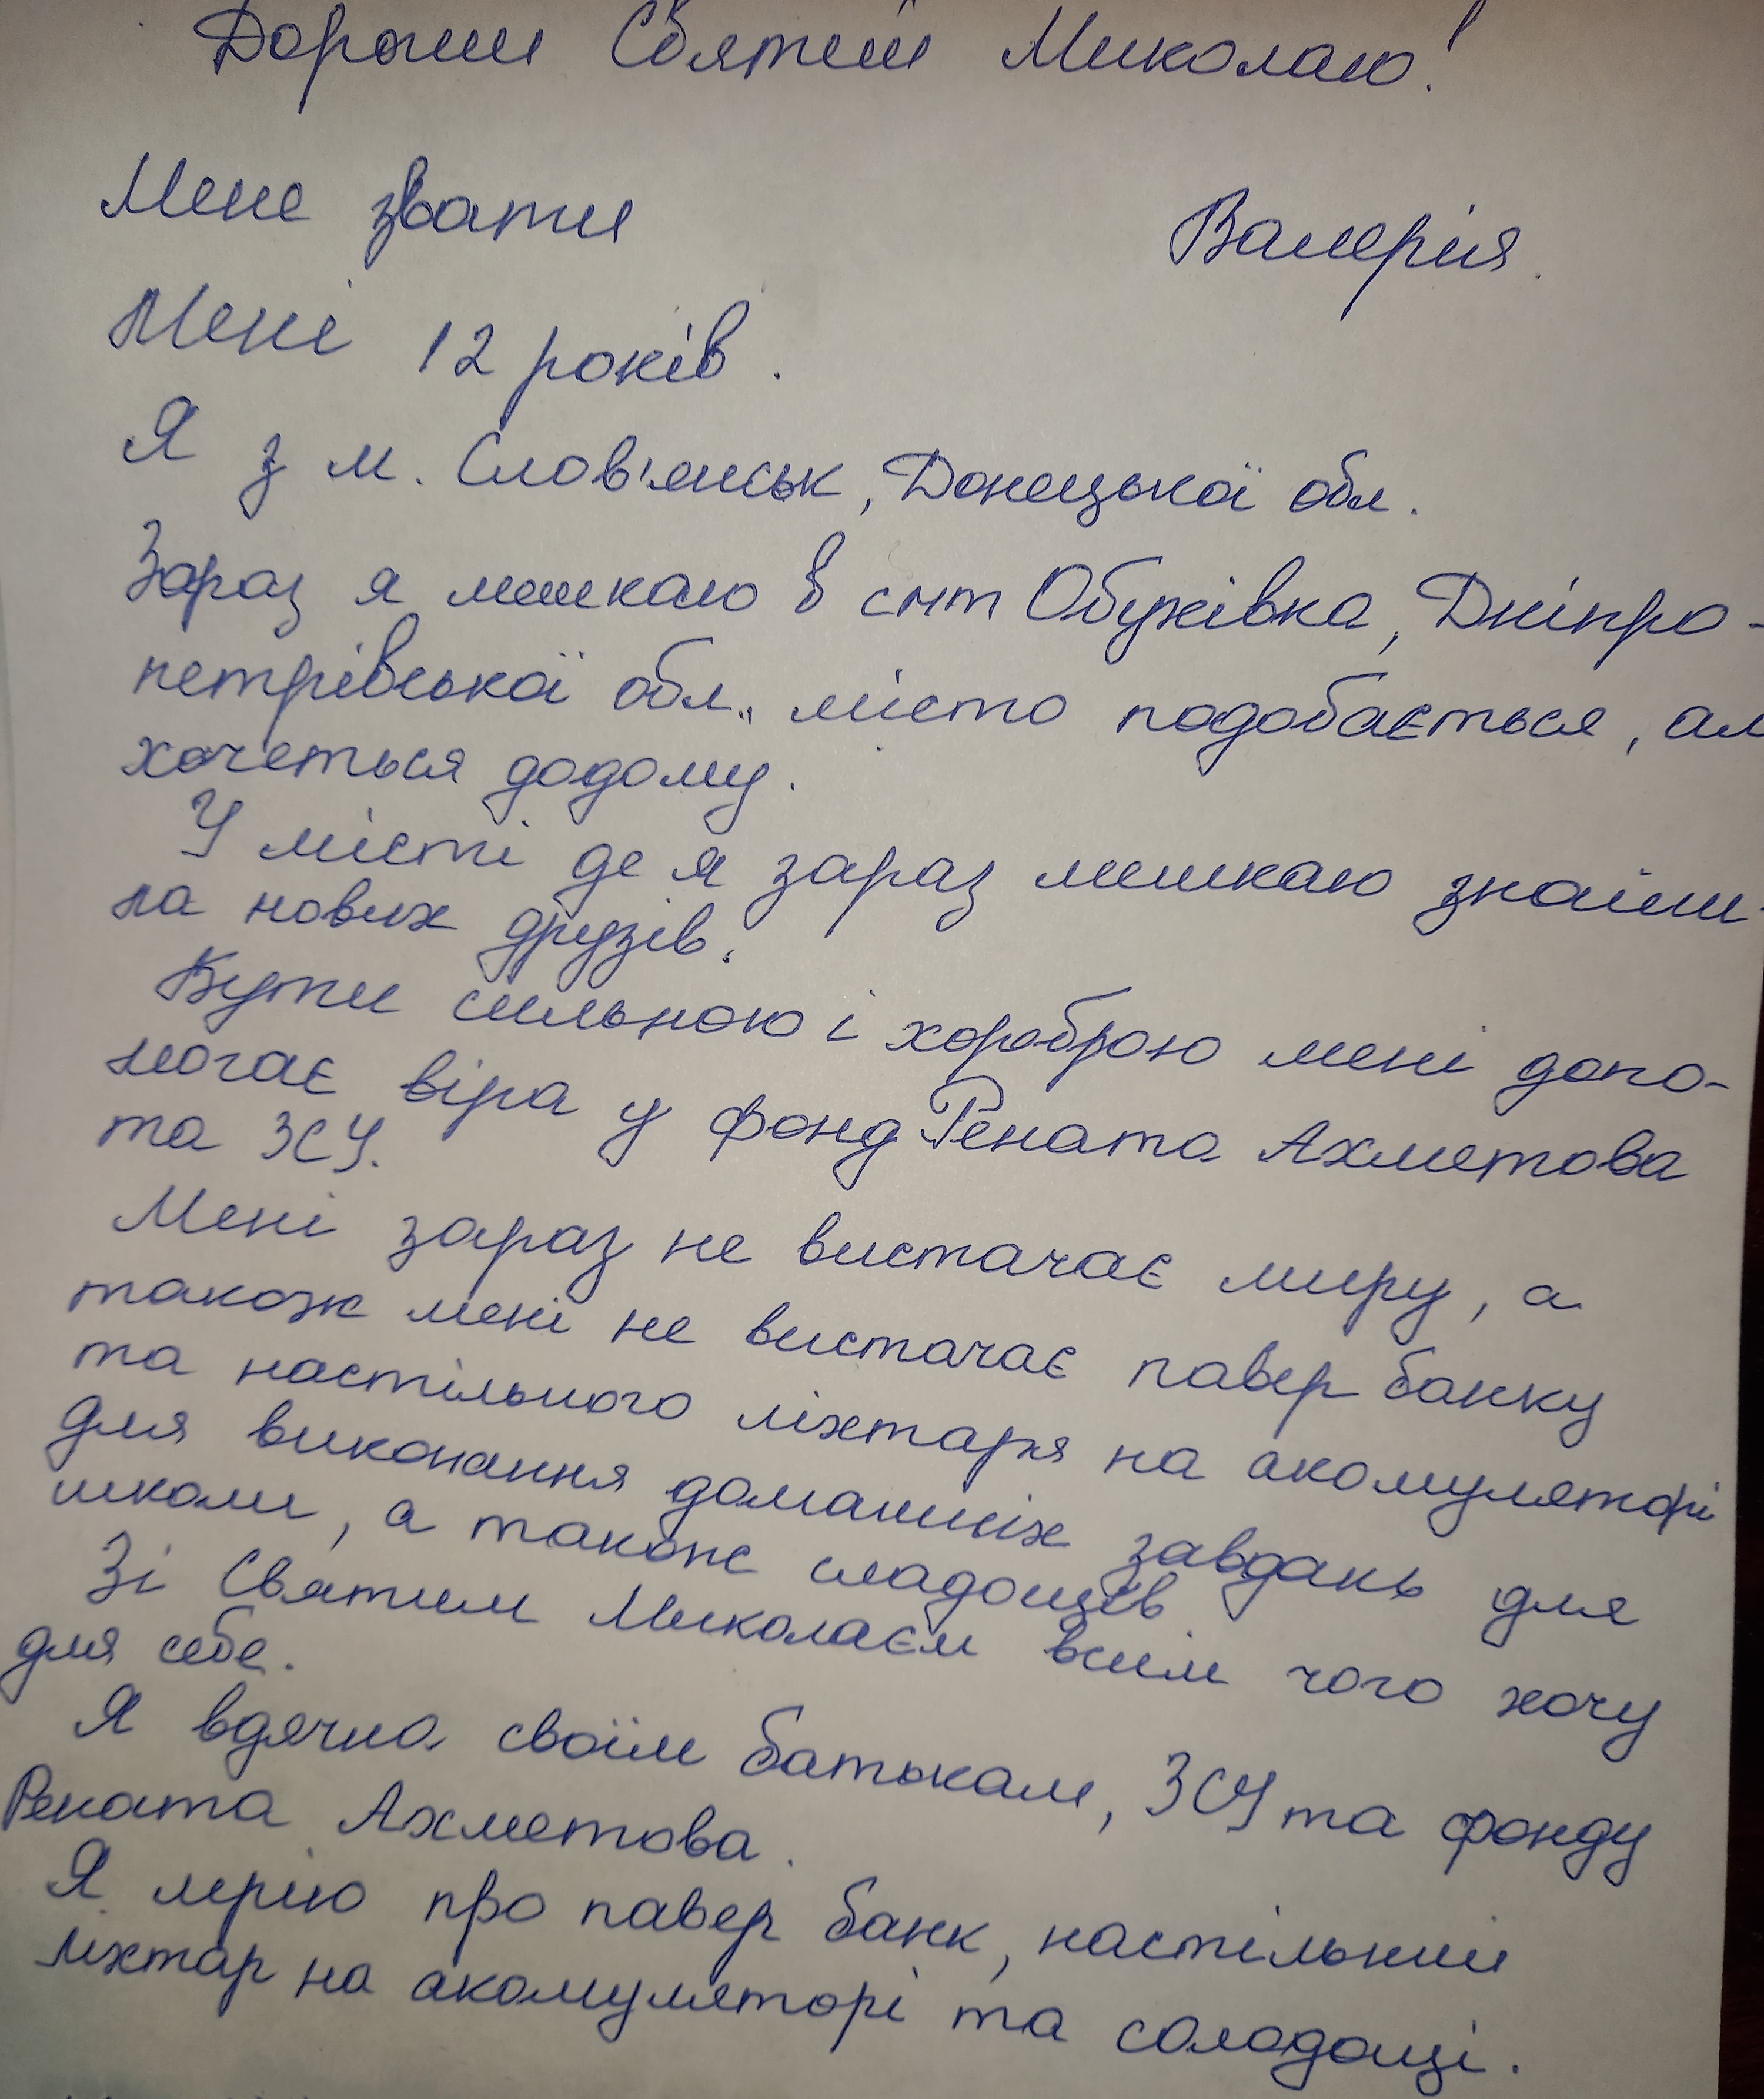 Дорогий Святий Миколаю!
Мене звати Валерія.
Мені 12 років.
Я з м. Слов'янськ, Донецької обл.
Зараз я мешкаю в смт Обухівка, Дніпро-
петрівської обл., місто подобається, ал
хочеться додому.
У місті де я зараз мешкаю знайш-
ла нових друзів.
Бути сильною і хороброю мені допо-
могає віра у фонд Рената Ахметова
та ЗСУ.
Мені зараз не вистачає миру, а
також мені не вистачає павер банку
та настільного ліхтаря на акомуляторі
для виконання домашніх завдань для
школи, а також сладощів
Зі Святим Миколаєм всим чого хочу
для себе.
Я вдячна своїм батькам, ЗСУ та фонду
Рената Ахметова.
Я мрію про павер банк, настільний
ліхтар на акомуляторі та солодощі.